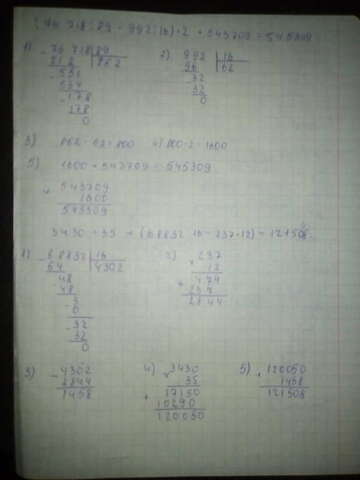 (76 718 : 89 - 992 : 16) · 2 + 543709 = 545309
1) 76 718 | 89
712 | 862
551
534
178
178
0
2) 992 | 16
96 | 62
32
32
0
3) 862 - 62 = 800 4) 800 · 2 = 1600
5) 1600 + 543709 = 545309
+ 543709
1600
545309
3430 · 35 + (68832 : 16 - 237 · 12) = 121508
1) 68832 | 16
64 | 4302
48
48
3
0
32
32
0
2) 237
× 12
474
+ 237
2844
3) - 4302
2844
1458
4) × 3430
35
17150
+ 10290
120050
5) + 120050
1458
121508